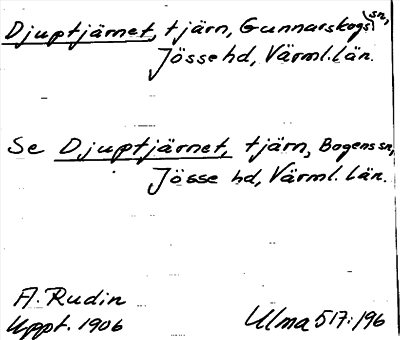 Djuptjärnet, tjärn, Gunnarskogs sn,
Jösse hd, Värml. län.
Se Djuptjärnet, tjärn, Bogens sn,
Jösse hd, Värml. län.
A. Rudin
Uppt. 1906
Ulma 517:196